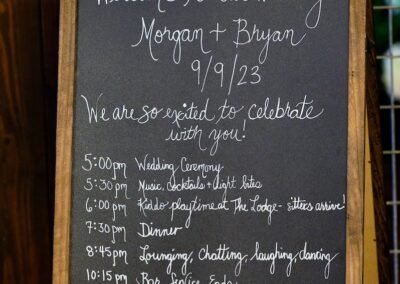 Morgan + Bryan
9/9/23
We are so excited to celebrate
with you!
5:00pm Wedding Ceremony
5:30pm Music, Cocktails + Light bites
6:00pm Kiddo playtime at The Lodge - sitters arrive!
7:30pm Dinner
8:45pm Lounging, Chatting, laughing, dancing
10:15pm Bar Service Ends